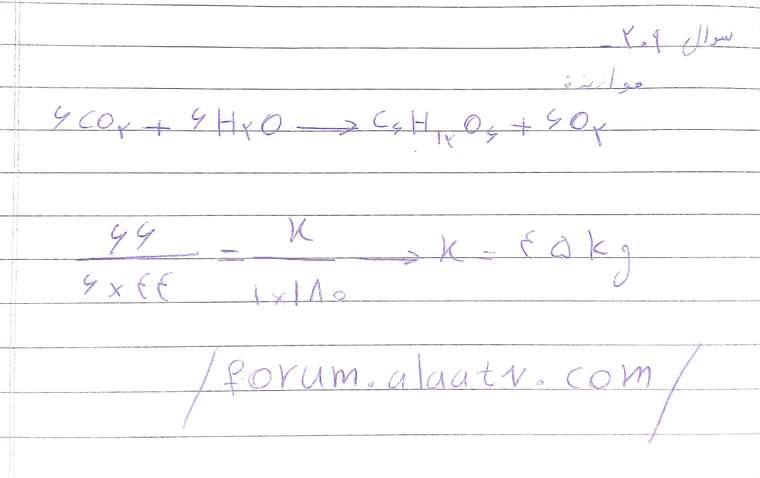 سوال ۲۰۹-
موازنه
۶CO۲ + ۶H۲O → C۶H۱۲O۶ + ۶O۲
۶۶ / ۶×۴۴ = x / ۱×۱۸۰ → x = ۴۵ kg
/forum.alaatv.com/